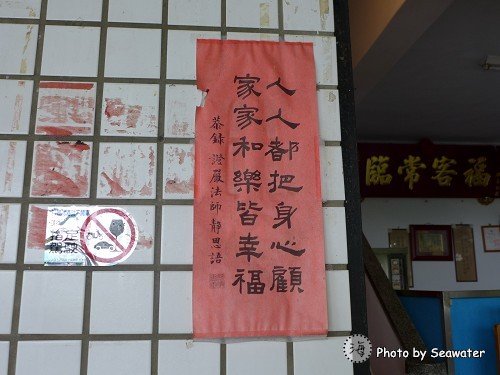 人人都把身心顧
家家和樂皆幸福
恭錄 證嚴法師 靜思語
福客常臨
Photo by Seawater